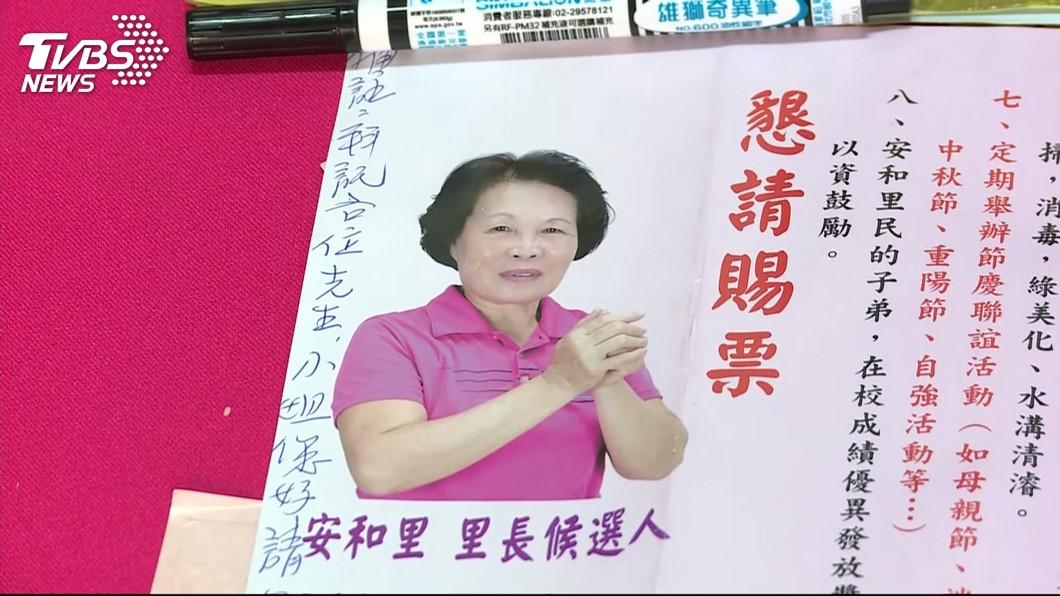 TVBS
NEWS
消費者服務專線:02-29578121
另有RF-PM32補充液可選購補充
全國第一家
雄獅奇異筆
NO.600
懇請賜票
掃，消毒，綠美化、水溝清濬。
七、定期舉辦節慶聯誼活動（如母親節、
中秋節、重陽節、自強活動等…）
八、安和里民的子弟，在校成績優異發放獎
以資鼓勵。
先生、小姐您好請
安和里 里長候選人